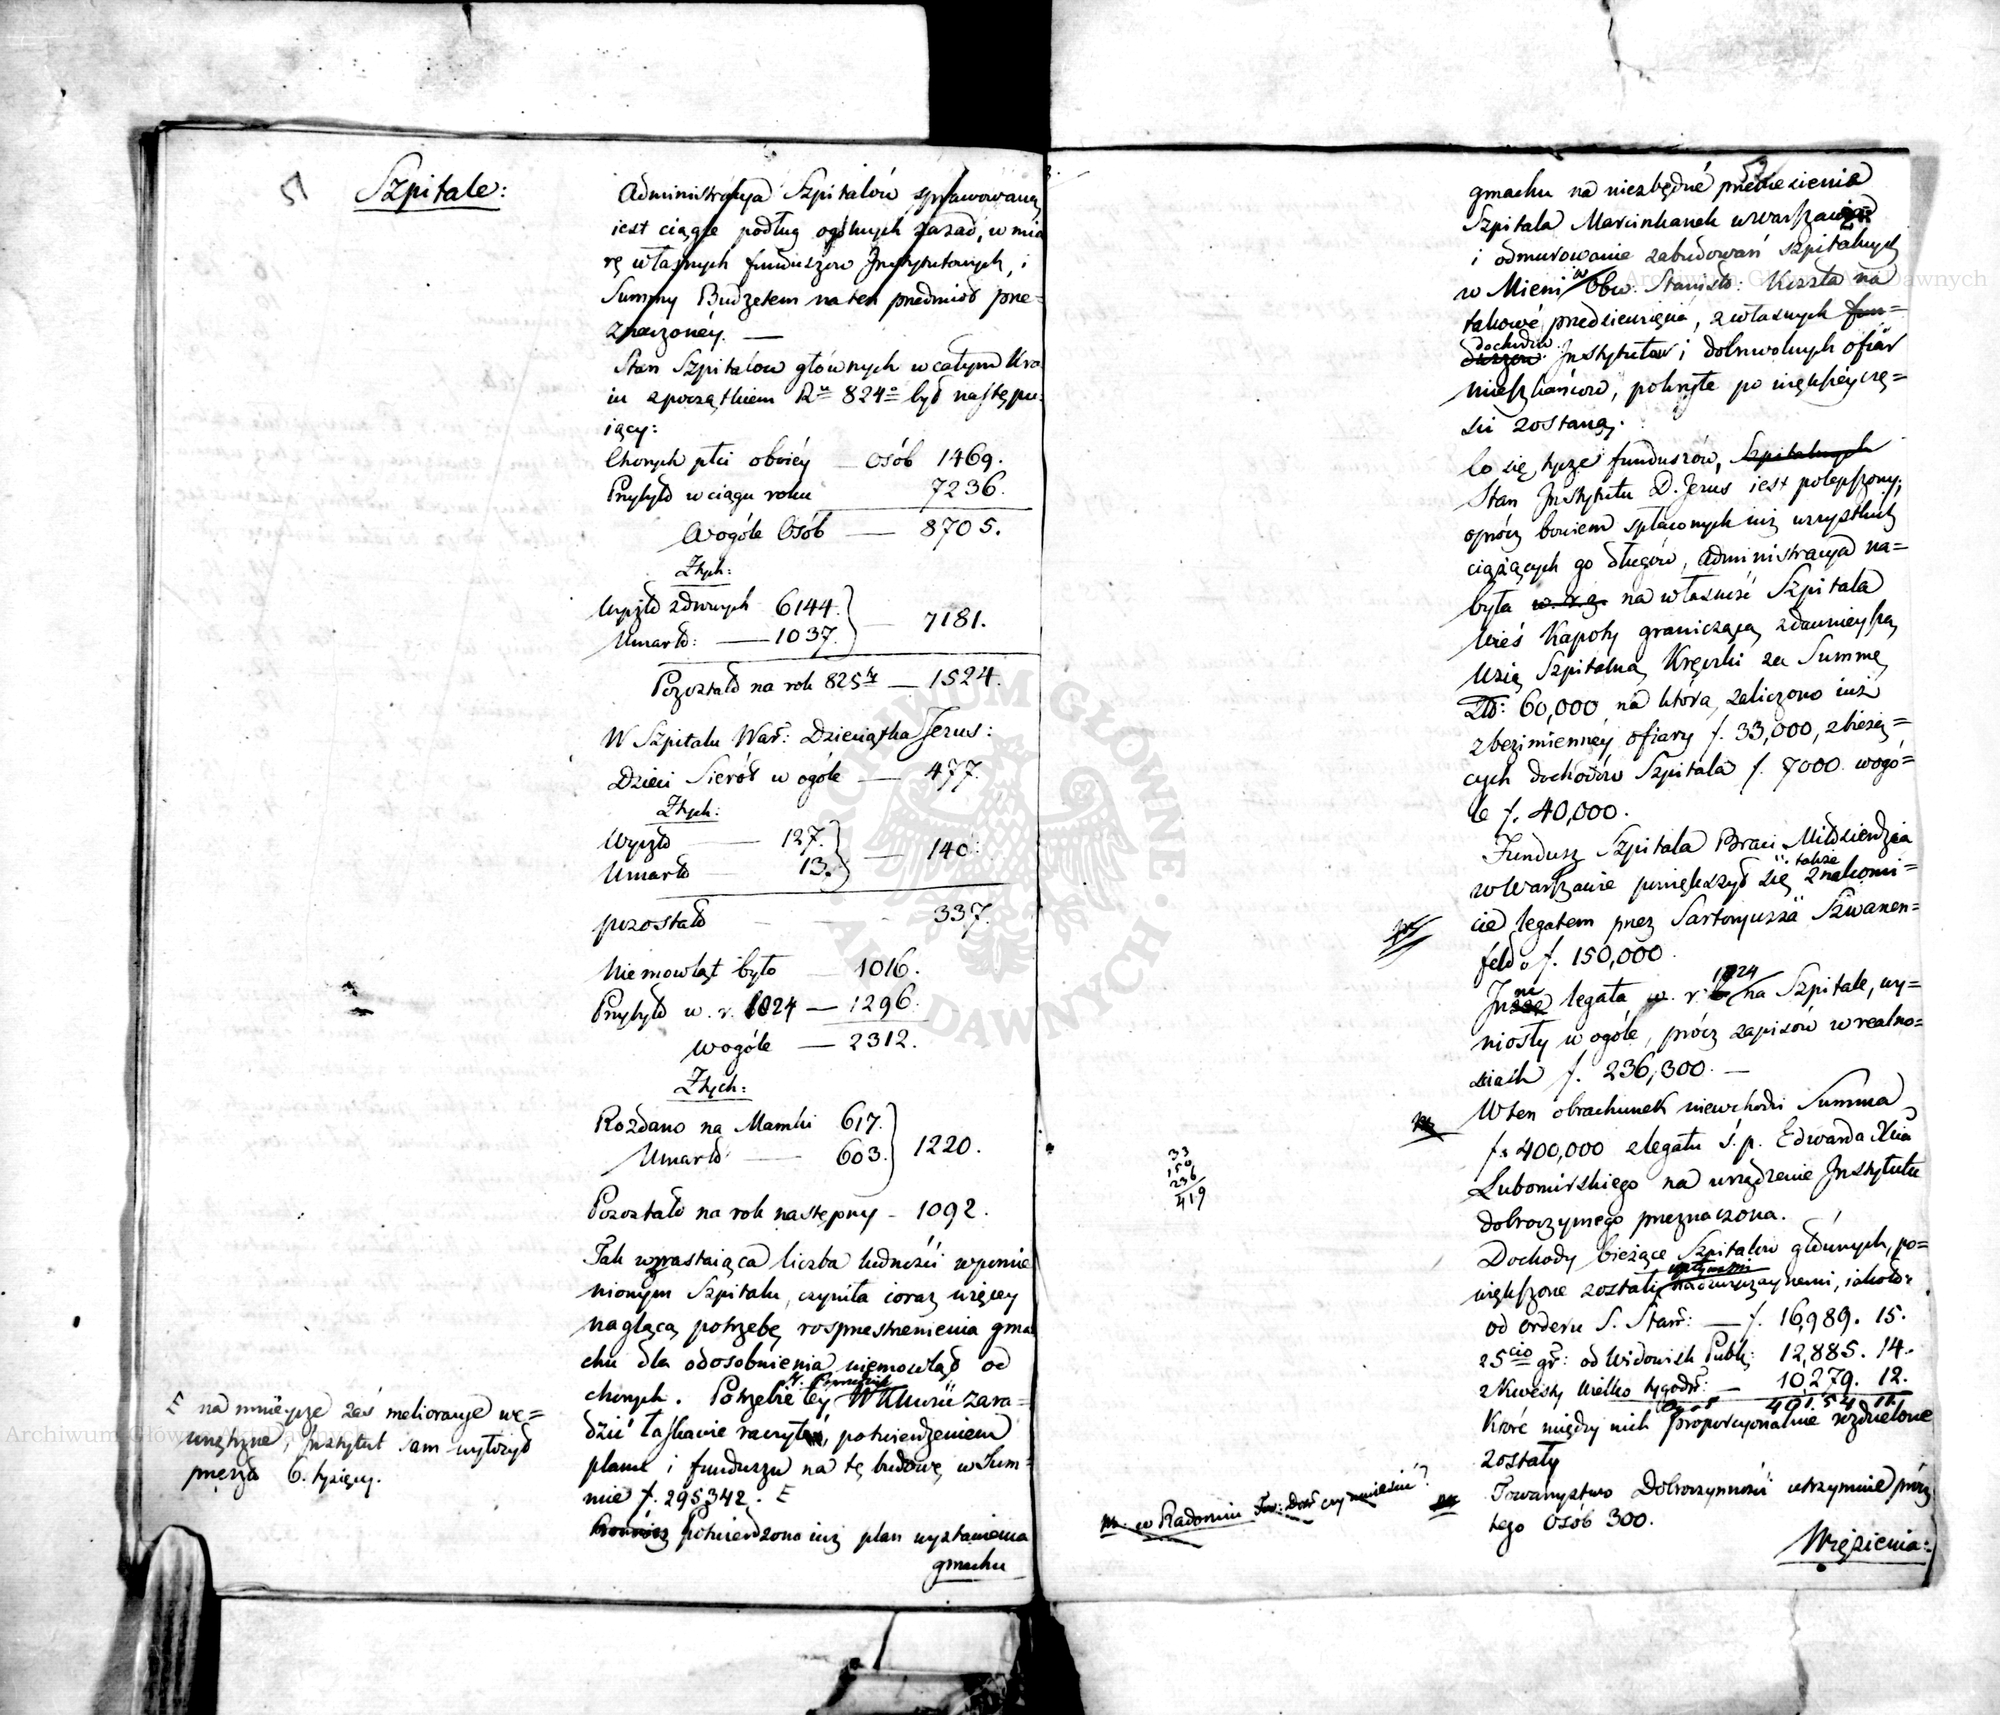 51
Szpitale:
Administracya Szpitalów sprawowaną
iest ciągle podług ogólnych zasad, w mia
rę własnych funduszow Instytutowych, i
Summy Budżetem na ten przedmiot prze=
znaczonéy. —
Stan Szpitalow głównych w całym Kra
iu z początkiem Ru 824o był następu=
iący:
Chorych płci oboiéy — osób 1469.
Przybyło w ciągu roku 7236.
Wogóle Osób — 8705.
Z tych:
Wyszło zdrowych 6144.
Umarło: — 1037. } — 7181.
Pozostało na rok 825ty — 1524.
W Szpitalu War: Dzieciątka Jezus:
Dzieci Sierót w ogóle — 477.
Z tych:
Wyszło — 127.
Umarło 13. } — 140.
pozostało — 337.
Niemowląt było — 1016.
Przybyło w. r. 1824 — 1296.
wogóle — 2312.
Z tych:
Rozdano na Mamki 617.
Umarło — 603. } 1220.
Pozostało na rok następny — 1092.
Tak wzrastaiąca liczba ludności w pomie
nionym Szpitalu, czyniła coraz więcey
naglącą potrzebę rosprzestrzenienia gma
chu dla odosobnienia niemowląt od
chorych. Potrzebie téy W. K. Mość zara=
dzić łaskawie raczyłeś, potwierdzeniem
planu i funduszu na tę budowę w Sum=
mie f. 295342. E
Potwierdzono iuż plan wystawienia
gmachu
E na mnieysze zaś melioracye we=
wnętrzne, Instytut sam wyłożył
przeszło 6. tysięcy.
53
gmachu na niezbędné przeniesienie
Szpitala Marcinkanek w Warszawie
i odmurowanie zabudowań szpitalnych
w Mieni w Obw. Stanisło: Koszta na
takowé przedsięwzięcia, z własnych fun=
duszow dochodów Instytutow i dobrowolnych ofiar
mieszkańców, pokryte po większéy czę=
ści zostaną.
Co się tycze funduszów, Szpitalnych
Stan Instytutu D. Jezus iest polepszony;
oprócz bowiem spłaconych iuż wszystkich
ciążących go długów, Administracya na=
była w. r. z. na własność Szpitala
Wieś Kaputy graniczącą z dawnieyszą
Wsią Szpitalną Kręczki za Summę
Zło: 60,000 na którą zaliczono iuż
z bezimiennéy ofiary f. 33,000, z bieżą=
cych dochodów Szpitala f. 7000. wogó=
le f. 40,000.
Fundusz Szpitala Braci Miłosierdzia
w Warszawie powiększył się także znakomi=
cie legatem przez Sartoryusza Szwanen=
feld o f. 150,000.
Inne legata w. r. 1824 na Szpitale, wy=
niosły w ogóle, prócz zapisów w realno=
ściach f. 236,300. —
W ten obrachunek niewchodzi Summa
f. 400,000 z legatu ś. p. Edwarda Xcia
Lubomirskiego na urządzenie Instytutu
dobroczynnego przeznaczona.
Dochody bieżące Szpitalow głównych, po=
większone zostały wpływami nadzwyczaynemi, iakoto:
od orderu S. Stan: — f. 16,989. 15.
z 5cio gr: od Widowisk Publ: 12,885. 14.
z Kwesty Wielko tygod: — 10,279. 12.
Które między nich proporcyonalnie rozdzielone
zostały
Towarzystwo Dobroczynności utrzymuie prócz
tego Osób 300.
Więzienia:
33
150
236
419
w Radomiu Tow: Dob: czy umieścić?